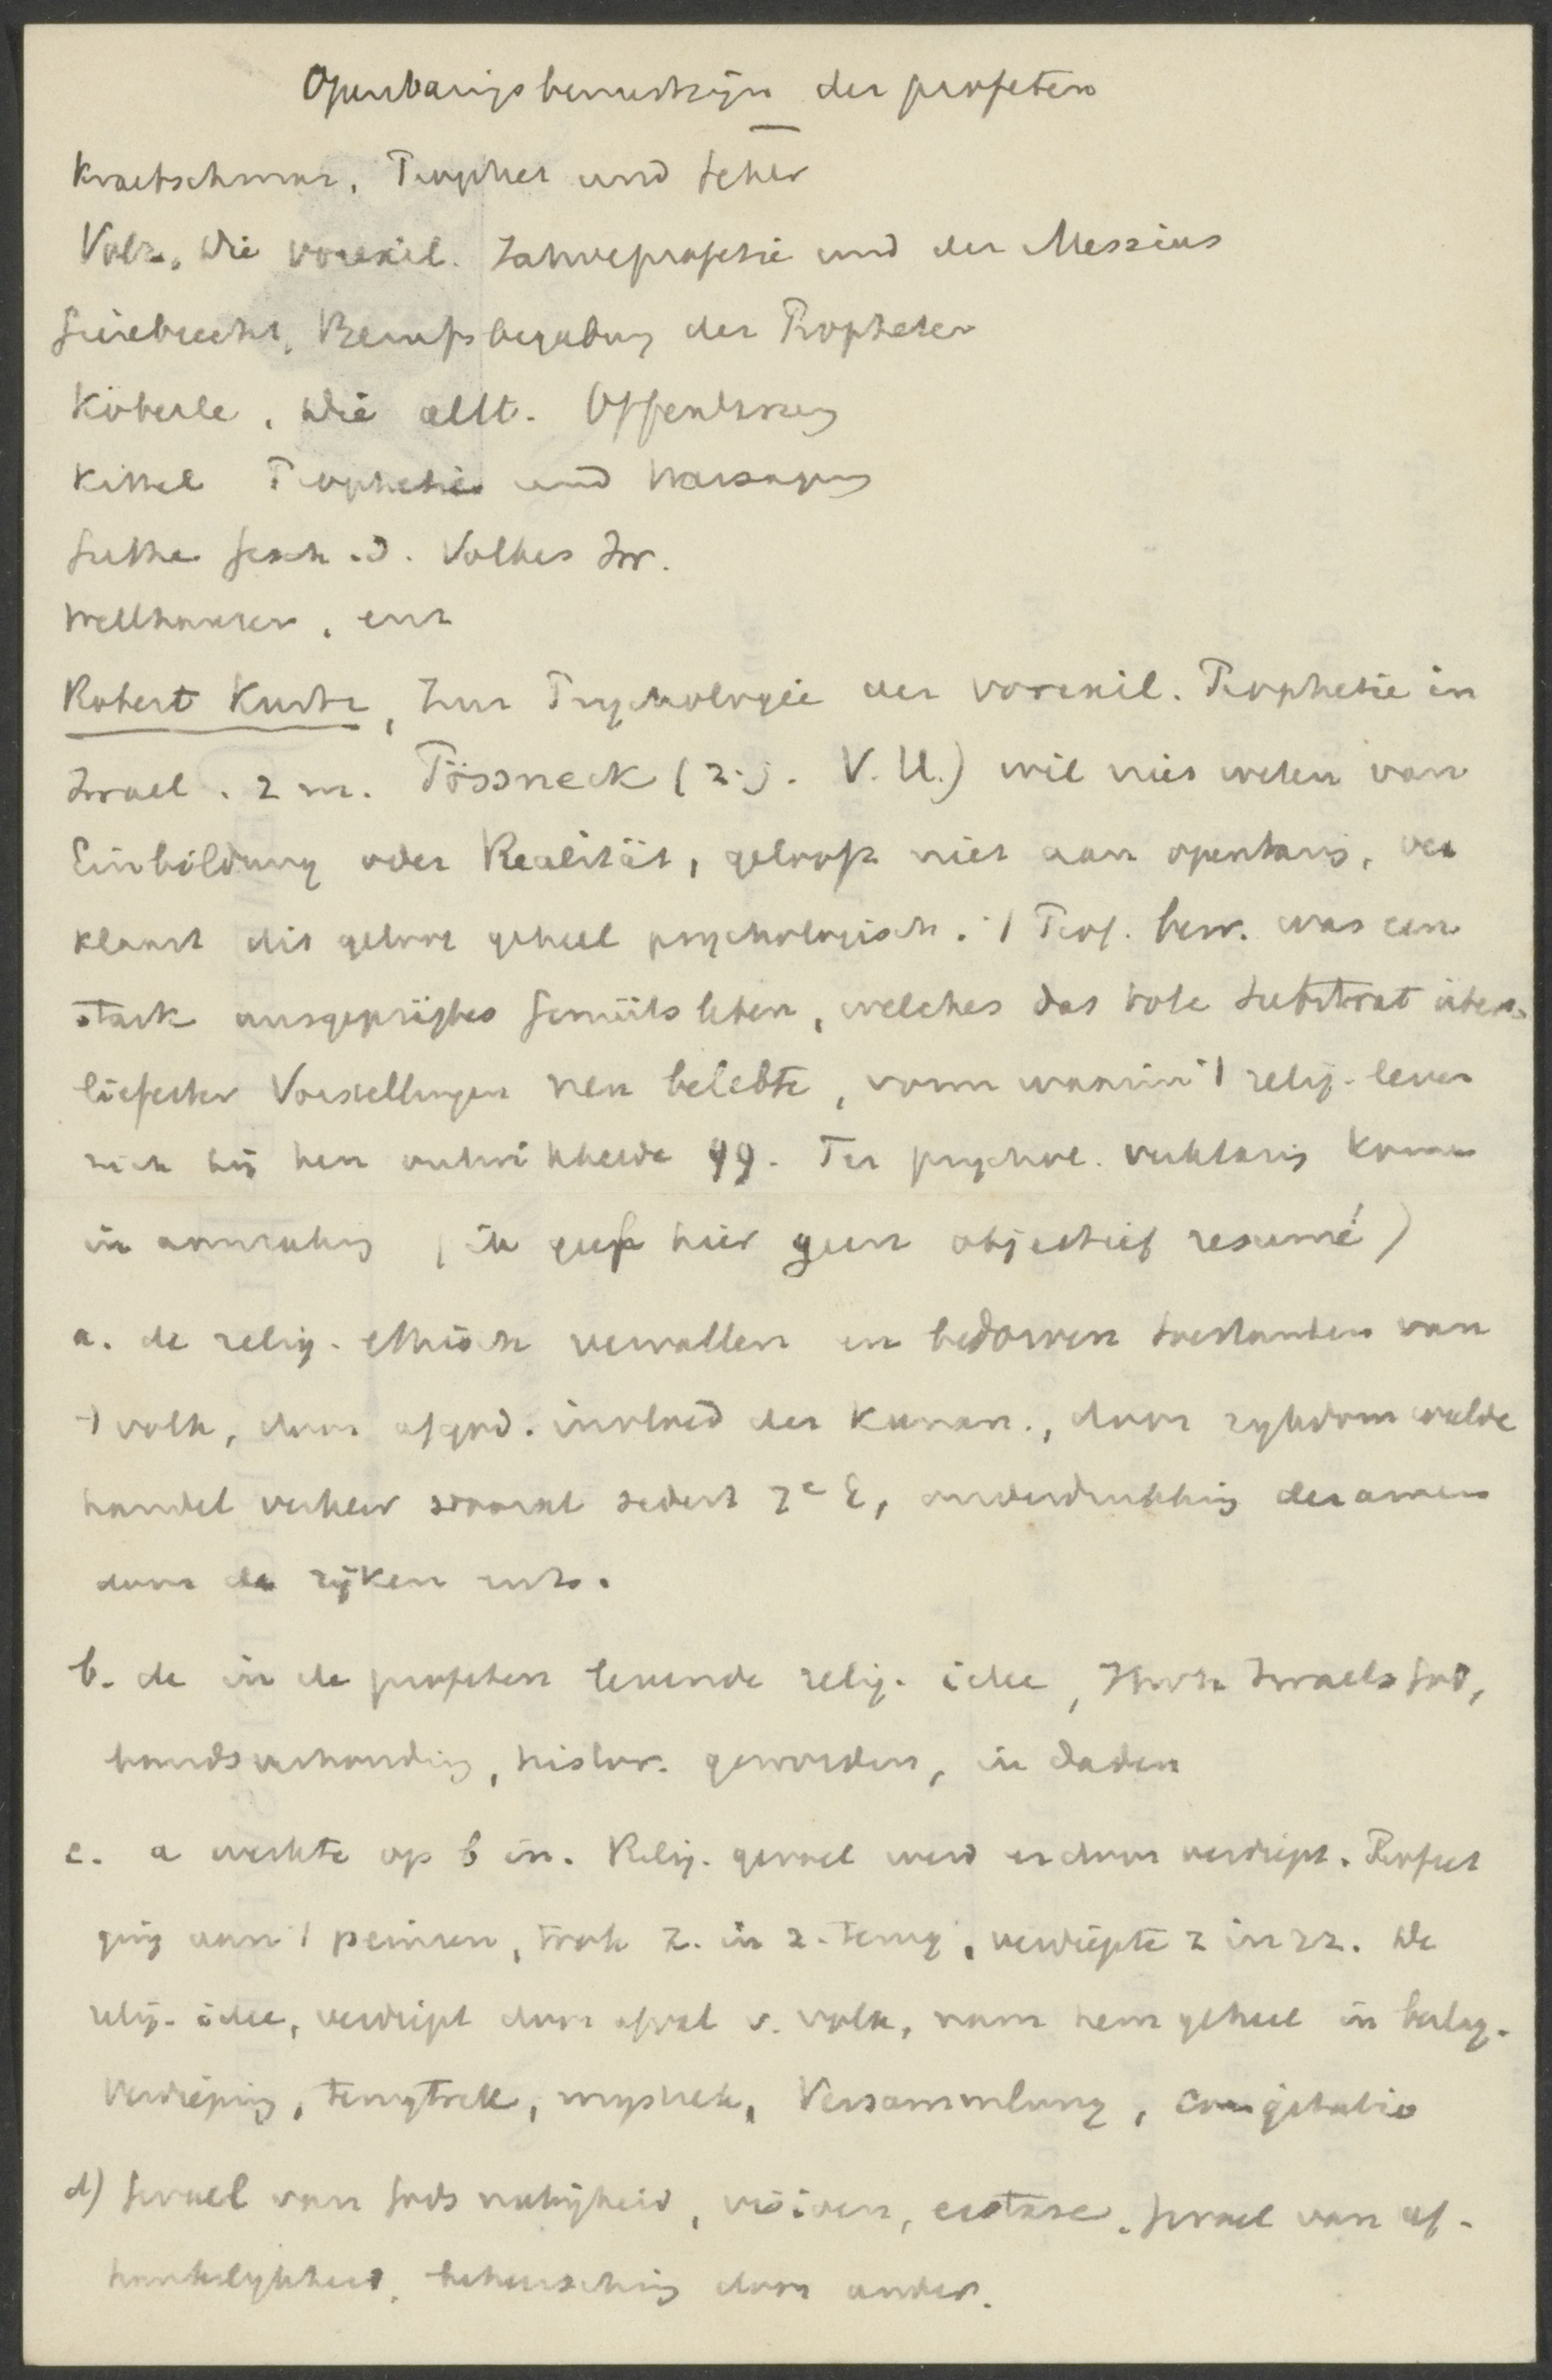 Openbaringsbewustzijn der profeten
Kraetzschmar, Prophet und Seher
Volz, Die vorexil. Jahveprofetie und der Messias
Giesebrecht, Berufsbegabung der Propheten
Köberle, Die altt. Offenbarung
Kittel Prophetie und Weissagung
Guthe Gesch. d. Volkes Isr.
Wellhausen, enz
Robert Kurtz, Zur Psychologie der vorexil. Prophetie in
Israel. 2 m. Pössneck (z.j. V.U.) wil niet weten van
Einbildung oder Realität, gelooft niet aan openbaring, ver
klaart dit geloof geheel psychologisch. 't Prof. bew. was een
stark ausgeprägtes Gemütsleben, welches das tote Substrat über-
lieferter Vorstellungen neu belebte, vorm waarin 't relig. leven
zich bij hen ontwikkelde 99. Ter psychol. verklaring komen
in aanmerking (ik geef hier geen objectief resumé)
a. de relig. ethisch vervallen en bedorven toestanden van
't volk, door afgod. invloed der Kanaän., door rijkdom weelde
handel verkeer vooral sedert 7e E, onderdrukking der armen
door de rijken enz.
b. de in de profeten levende relig. idee, JHVH Israels God,
bondsverhouding, histor. geworden, in daden
c. a werkte op b in. Relig. gevoel werd erdoor verdiept. Profeet
ging aan 't peinzen, trok z. in z. terug, verdiepte z in zz. De
relig. idee, verdiept door afval v. volk, nam hem geheel in beslag.
Verdieping, terugtrek, mystiek, Versammlung, cogitatio
d) Gevoel van Gods nabijheid, visioen, ecstase. Gevoel van af-
hankelijkheid, beheersching door ander.